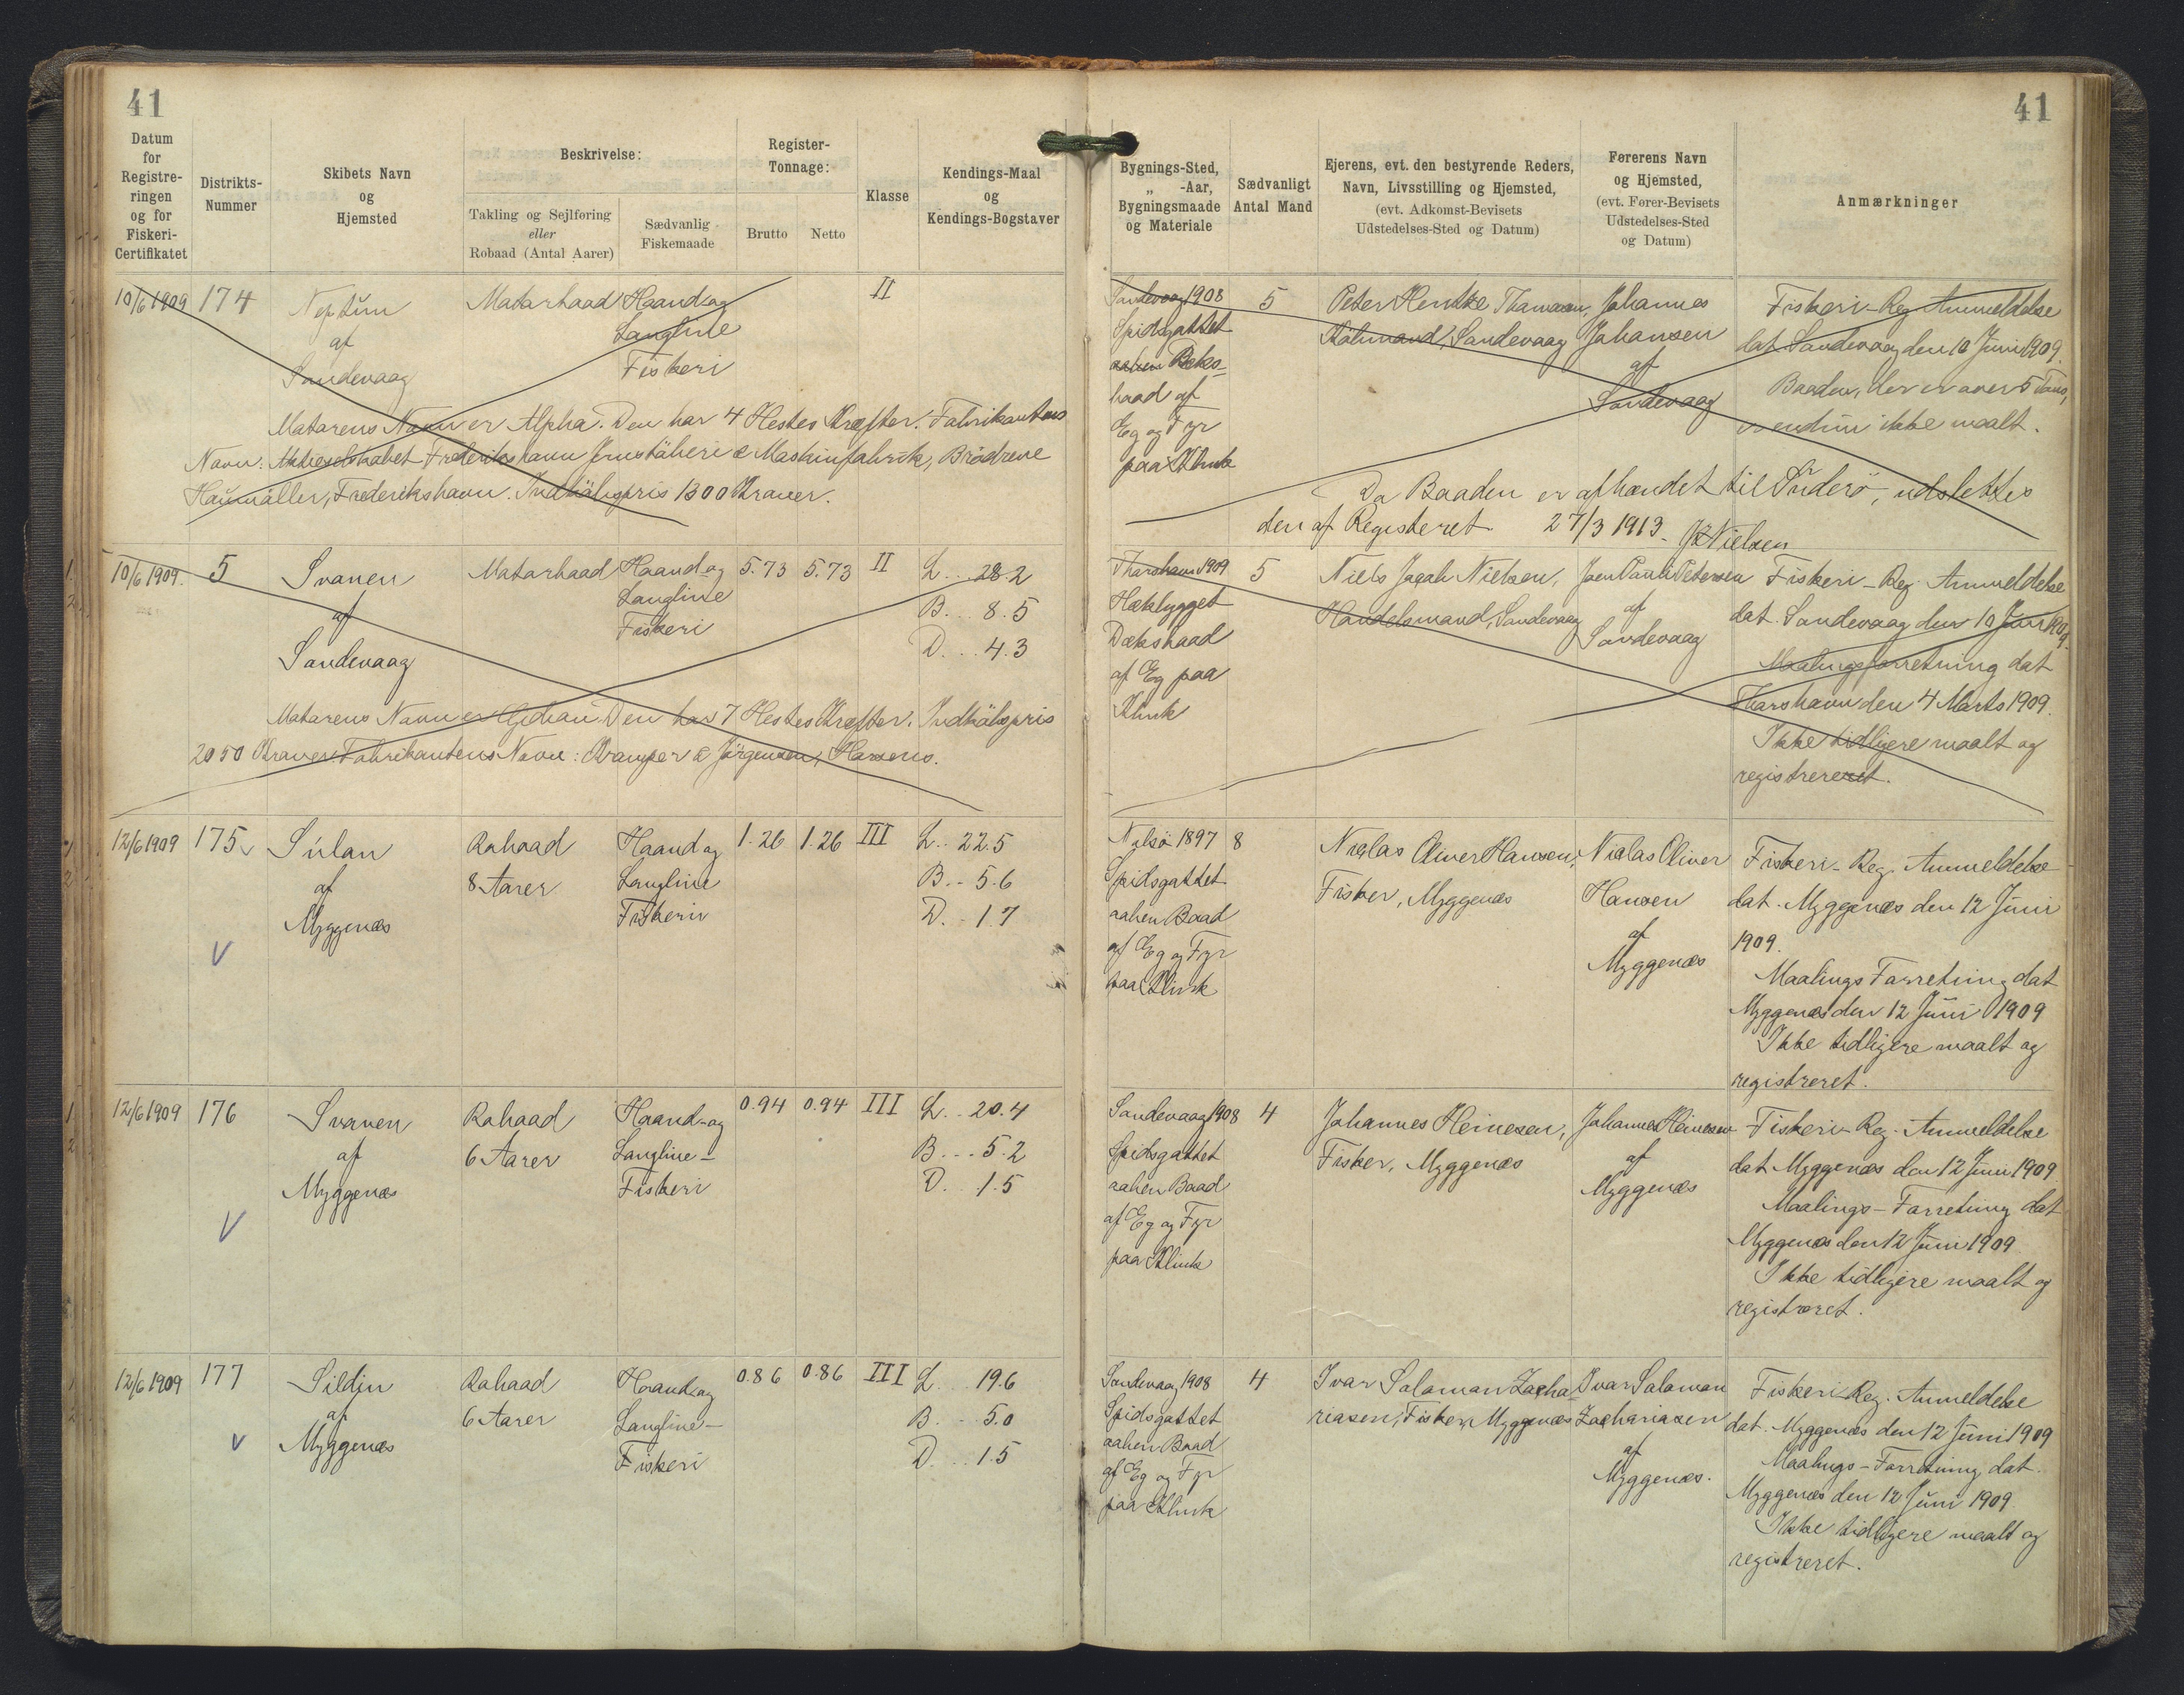 41
41
Datum
for
Registre-
ringen
og for
Fiskeri-
Certifikatet
Distrikts-
Nummer
Skibets Navn
og
Hjemsted
Beskrivelse:
Takling og Sejlføring
eller
Robaad (Antal Aarer)
Sædvanlig
Fiskemaade
Register-
Tonnage:
Brutto
Netto
Klasse
Kendings-Maal
og
Kendings-Bogstaver
Bygnings-Sted,
„ -Aar,
Bygningsmaade
og Materiale
Sædvanligt
Antal Mand
Ejerens, evt. den bestyrende Reders,
Navn, Livsstilling og Hjemsted,
(evt. Adkomst-Bevisets
Udstedelses-Sted og Datum)
Førerens Navn
og Hjemsted,
(evt. Fører-Bevisets
Udstedelses-Sted
og Datum)
Anmærkninger
10/6 1909
174
Neptun
af
Sandevaag
Motorbaad
Haand og
Langline
Fiskeri
II
Motorens Navn er Alpha. Den har 4 Hestes Kræfter. Fabrikantens
Navn: Aktieselskabet Frederikshavn Jernstøberi & Maskinfabrik, Brødrene
Houmøller, Frederikshavn. Indkøbspris 1300 Kroner.
Sandevaag 1908
Spidsgattet
aaben
baad af
Eg og Fyr
paa Klink
5
Peter Hentze Thomsen,
Købmand, Sandevaag
Johannes
Johansen
af
Sandevaag
Fiskeri-Reg. Anmeldelse
dat. Sandevaag den 10 Juni 1909.
Baaden, der er over 5 Tons,
endnu ikke maalt.
Da Baaden er afhændet til Suderø, udslettes
den af Registeret. 27/3 1913. Nielsen
10/6 1909.
5
Svanen
af
Sandevaag
Motorbaad
Haand og
Langline
Fiskeri
5.73
5.73
II
L... 28.2
B... 8.5
D... 4.3
Motorens Navn er Gideon. Den har 7 Hestes Kræfter. Indkøbspris
2050 Kroner. Fabrikantens Navn: Kramper & Jørgensen, Horsens.
Thorshavn 1909
Hækbygget
Dæksbaad
af Eg paa
Klink
5
Niels Jacob Nielsen,
Handelsmand, Sandevaag
Joen Pauli Petersen
af
Sandevaag
Fiskeri-Reg. Anmeldelse
dat. Sandevaag den 10 Juni 1909.
Maalingsforretning dat
Thorshavn den 4 Marts 1909.
Ikke tidligere maalt og
registreret.
12/6 1909
175
Súlan
af
Myggenæs
Robaad
8 Aarer
Haand og
Langline
Fiskeri
1.26
1.26
III
L.. 22.5
B.. 5.6
D.. 1.7
Nolsö 1897
Spidsgattet
aaben Baad
af Eg og Fyr
paa Klink
8
Nicolas Oliver Hansen,
Fisker, Myggenæs
Nicolas Oliver
Hansen
af
Myggenæs
Fiskeri-Reg. Anmeldelse
dat. Myggenæs den 12 Juni
1909.
Maalings Forretning dat
Myggenæs den 12 Juni 1909
Ikke tidligere maalt og
registreret.
12/6 1909
176
Svanen
af
Myggenæs
Robaad
6 Aarer
Haand-og
Langline-
Fiskeri
0.94
0.94
III
L.. 20.4
B... 5.2
D... 1.5
Sandevaag 1908
Spidsgattet
aaben Baad
af Eg og Fyr
paa Klink
4
Johannes Heinesen,
Fisker, Myggenæs
Johannes Heinesen
af
Myggenæs
Fiskeri-Reg. Anmeldelse
dat. Myggenæs den 12 Juni 1909.
Maalings-Forretning dat
Myggenæs den 12 Juni 1909.
Ikke tidligere maalt og
registreret.
12/6 1909
177
Sildin
af
Myggenæs
Robaad
6 Aarer
Haand og
Langline-
Fiskeri
0.86
0.86
III
L... 19.6
B... 5.0
D... 1.5
Sandevaag 1908
Spidsgattet
aaben Baad
af Eg og Fyr
paa Klink
4
Ivar Salomon Zacha-
riasen, Fisker, Myggenæs
Ivar Salomon
Zachariasen
af
Myggenæs.
Fiskeri-Reg. Anmeldelse
dat. Myggenæs den 12 Juni 1909
Maalings-Forretning dat.
Myggenæs den 12 Juni 1909.
Ikke tidligere maalt og
registreret.